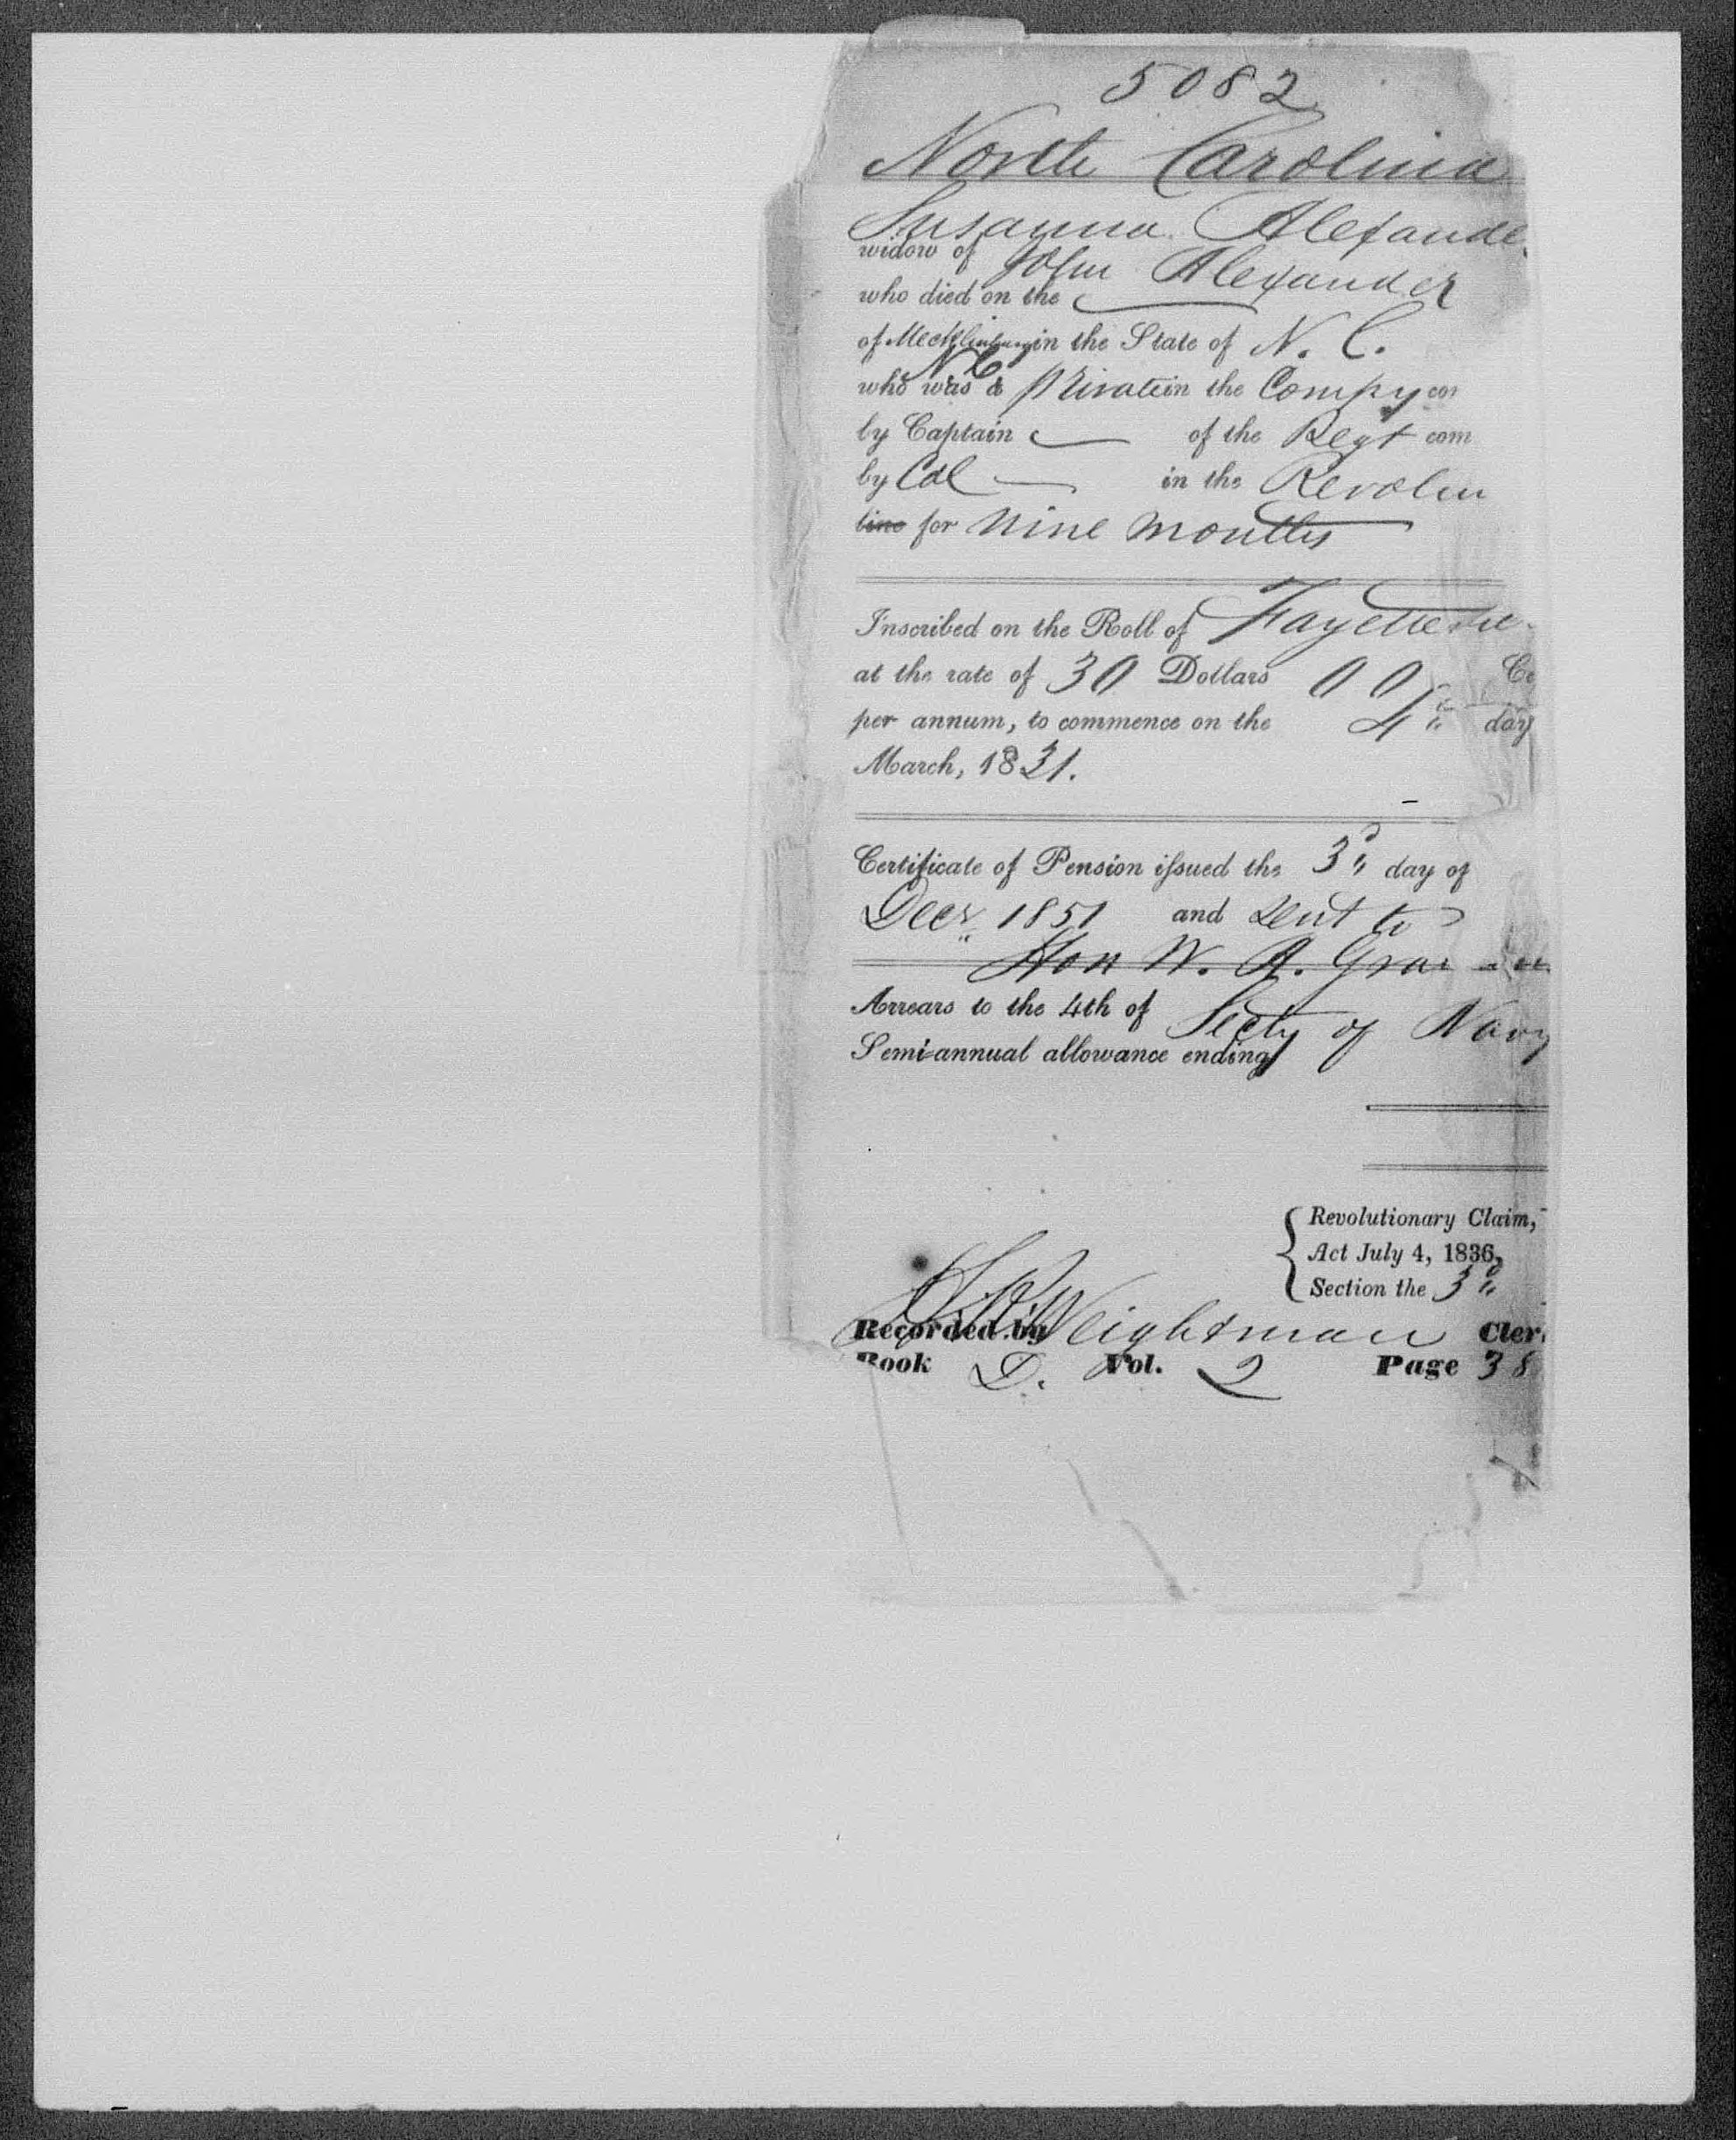 5082
North Carolina
Susanna Alexander
widow of John Alexander
who died on the
of Mecklenburg in the State of N. C.
N C
who was a Private in the Compy co
by Captain — of the Regt com
by Col — in the Revolu
line for Nine months
Inscribed on the Roll of Fayettevi
at the rate of 30 Dollars 00 Ce
per annum, to commence on the 4th day
March, 1831.
Certificate of Pension issued the 3d day of
Decr 1851 and sent to
Hon W. A. Gra
Arrears to the 4th of
Secty of Navy
Semi-annual allowance ending
Revolutionary Claim,
Act July 4, 1836,
Section the 3d
Recorded by Weightman Cler
Book D. Vol. 2 Page 38